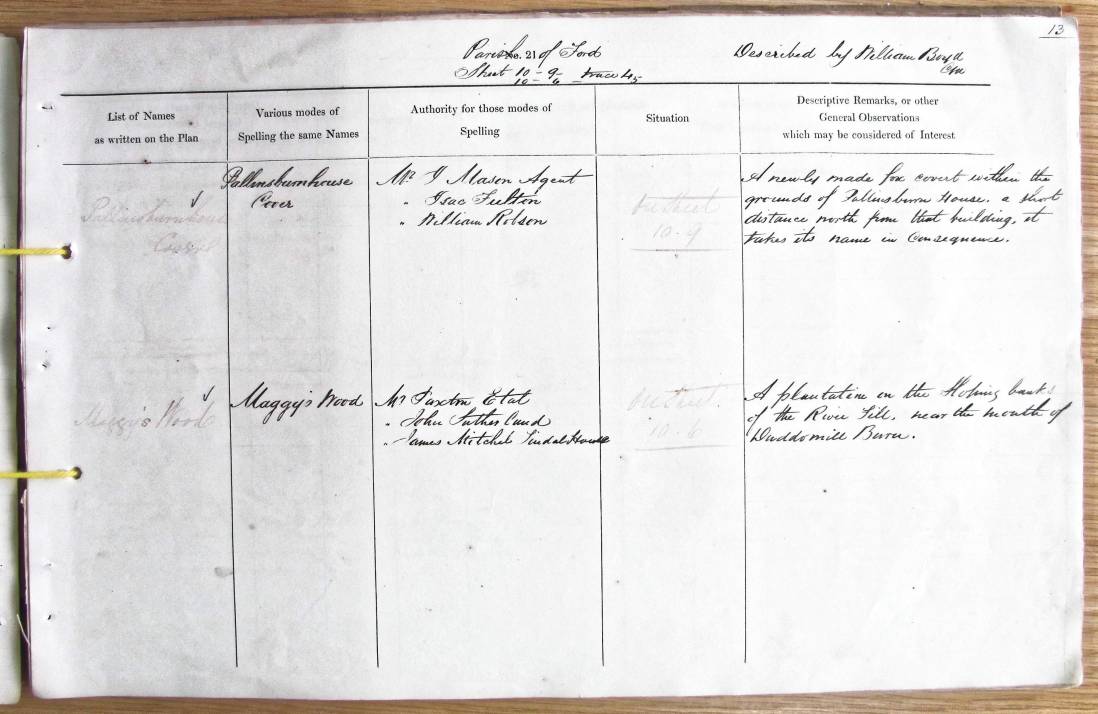 13
Parish No. 21 of Ford
Described by William Boyd
C/m
Sheet 10-9 10-6 trace 4,5
List of Names
as written on the Plan
Various modes of
Spelling the same Names
Authority for those modes of
Spelling
Situation
Descriptive Remarks, or other
General Observations
which may be considered of Interest
Pallinsburnhouse
Cover
Pallinsburnhouse
Cover
Mr. J Mason Agent
" Isac Fulton
" William Robson
On Sheet
10-9
A newly made fox covert within the
grounds of Pallinsburn House. a short
distance north from that building, it
takes its name in Consequence.
Maggy's Wood
Maggy's Wood
Mr Paxton Etal
" John Sutherland
" James Mitchel Tindal House
On Sheet.
10-6
A plantation on the Sloping banks
of the River Till. near the mouth of
Duddomill Burn.